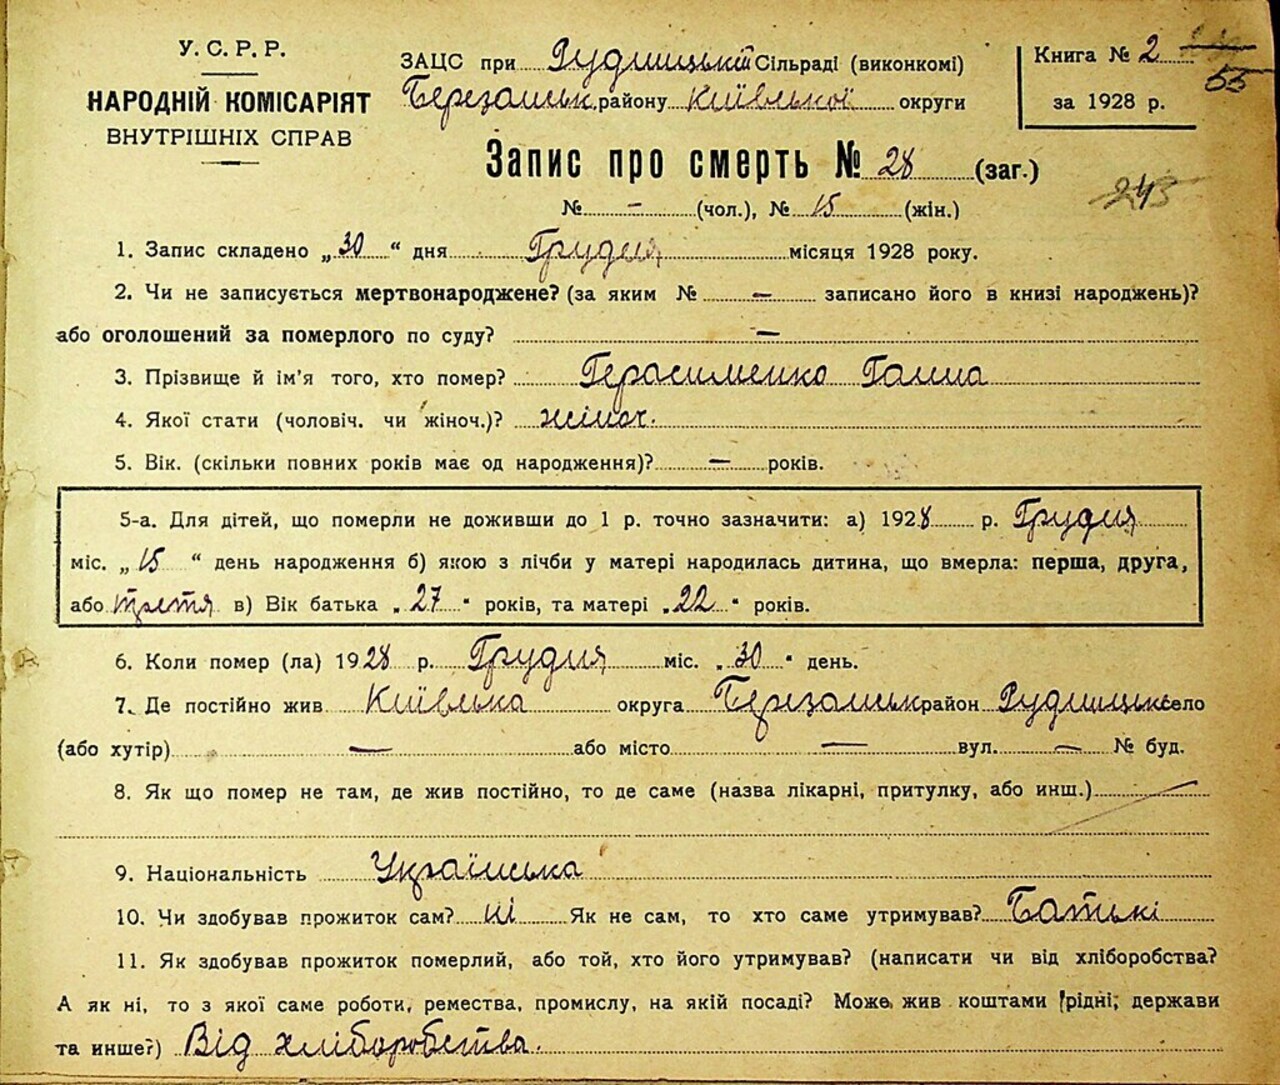 У. С. Р. Р.
НАРОДНІЙ КОМІСАРІЯТ
ВНУТРІШНІХ СПРАВ
ЗАЦС при Рудницькій Сільраді (виконкомі)
Березанськ. району Київської округи
Книга № 2
55
за 1928 р.
Запис про смерть № 28 (заг.)
243
№ – (чол.), № 15 (жін.)
1. Запис складено „30“ дня Грудня місяця 1928 року.
2. Чи не записується мертвонароджене? (за яким № – записано його в книзі народжень)?
або оголошений за померлого по суду? –
3. Прізвище й ім'я того, хто помер? Герасименко Ганна
4. Якої стати (чоловіч. чи жіноч.)? жіноч.
5. Вік. (скільки повних років має од народження)? – років.
5-а. Для дітей, що померли не доживши до 1 р. точно зазначити: а) 1928 р. Грудня
міс. „15“ день народження б) якою з лічби у матері народилась дитина, що вмерла: перша, друга,
або третя в) Вік батька „27“ років, та матері „22“ років.
6. Коли помер (ла) 1928 р. Грудня міс. „30“ день.
7. Де постійно жив Київська округа Березанськ район Рудницьк село
(або хутір) – або місто – вул. – № буд.
8. Як що помер не там, де жив постійно, то де саме (назва лікарні, притулку, або инш.)
9. Національність Українська
10. Чи здобував прожиток сам? ні Як не сам, то хто саме утримував? Батькі
11. Як здобував прожиток померлий, або той, хто його утримував? (написати чи від хліборобства?
А як ні, то з якої саме роботи, ремества, промислу, на якій посаді? Може жив коштами рідні, держави
та инше?) Від хліборобства.